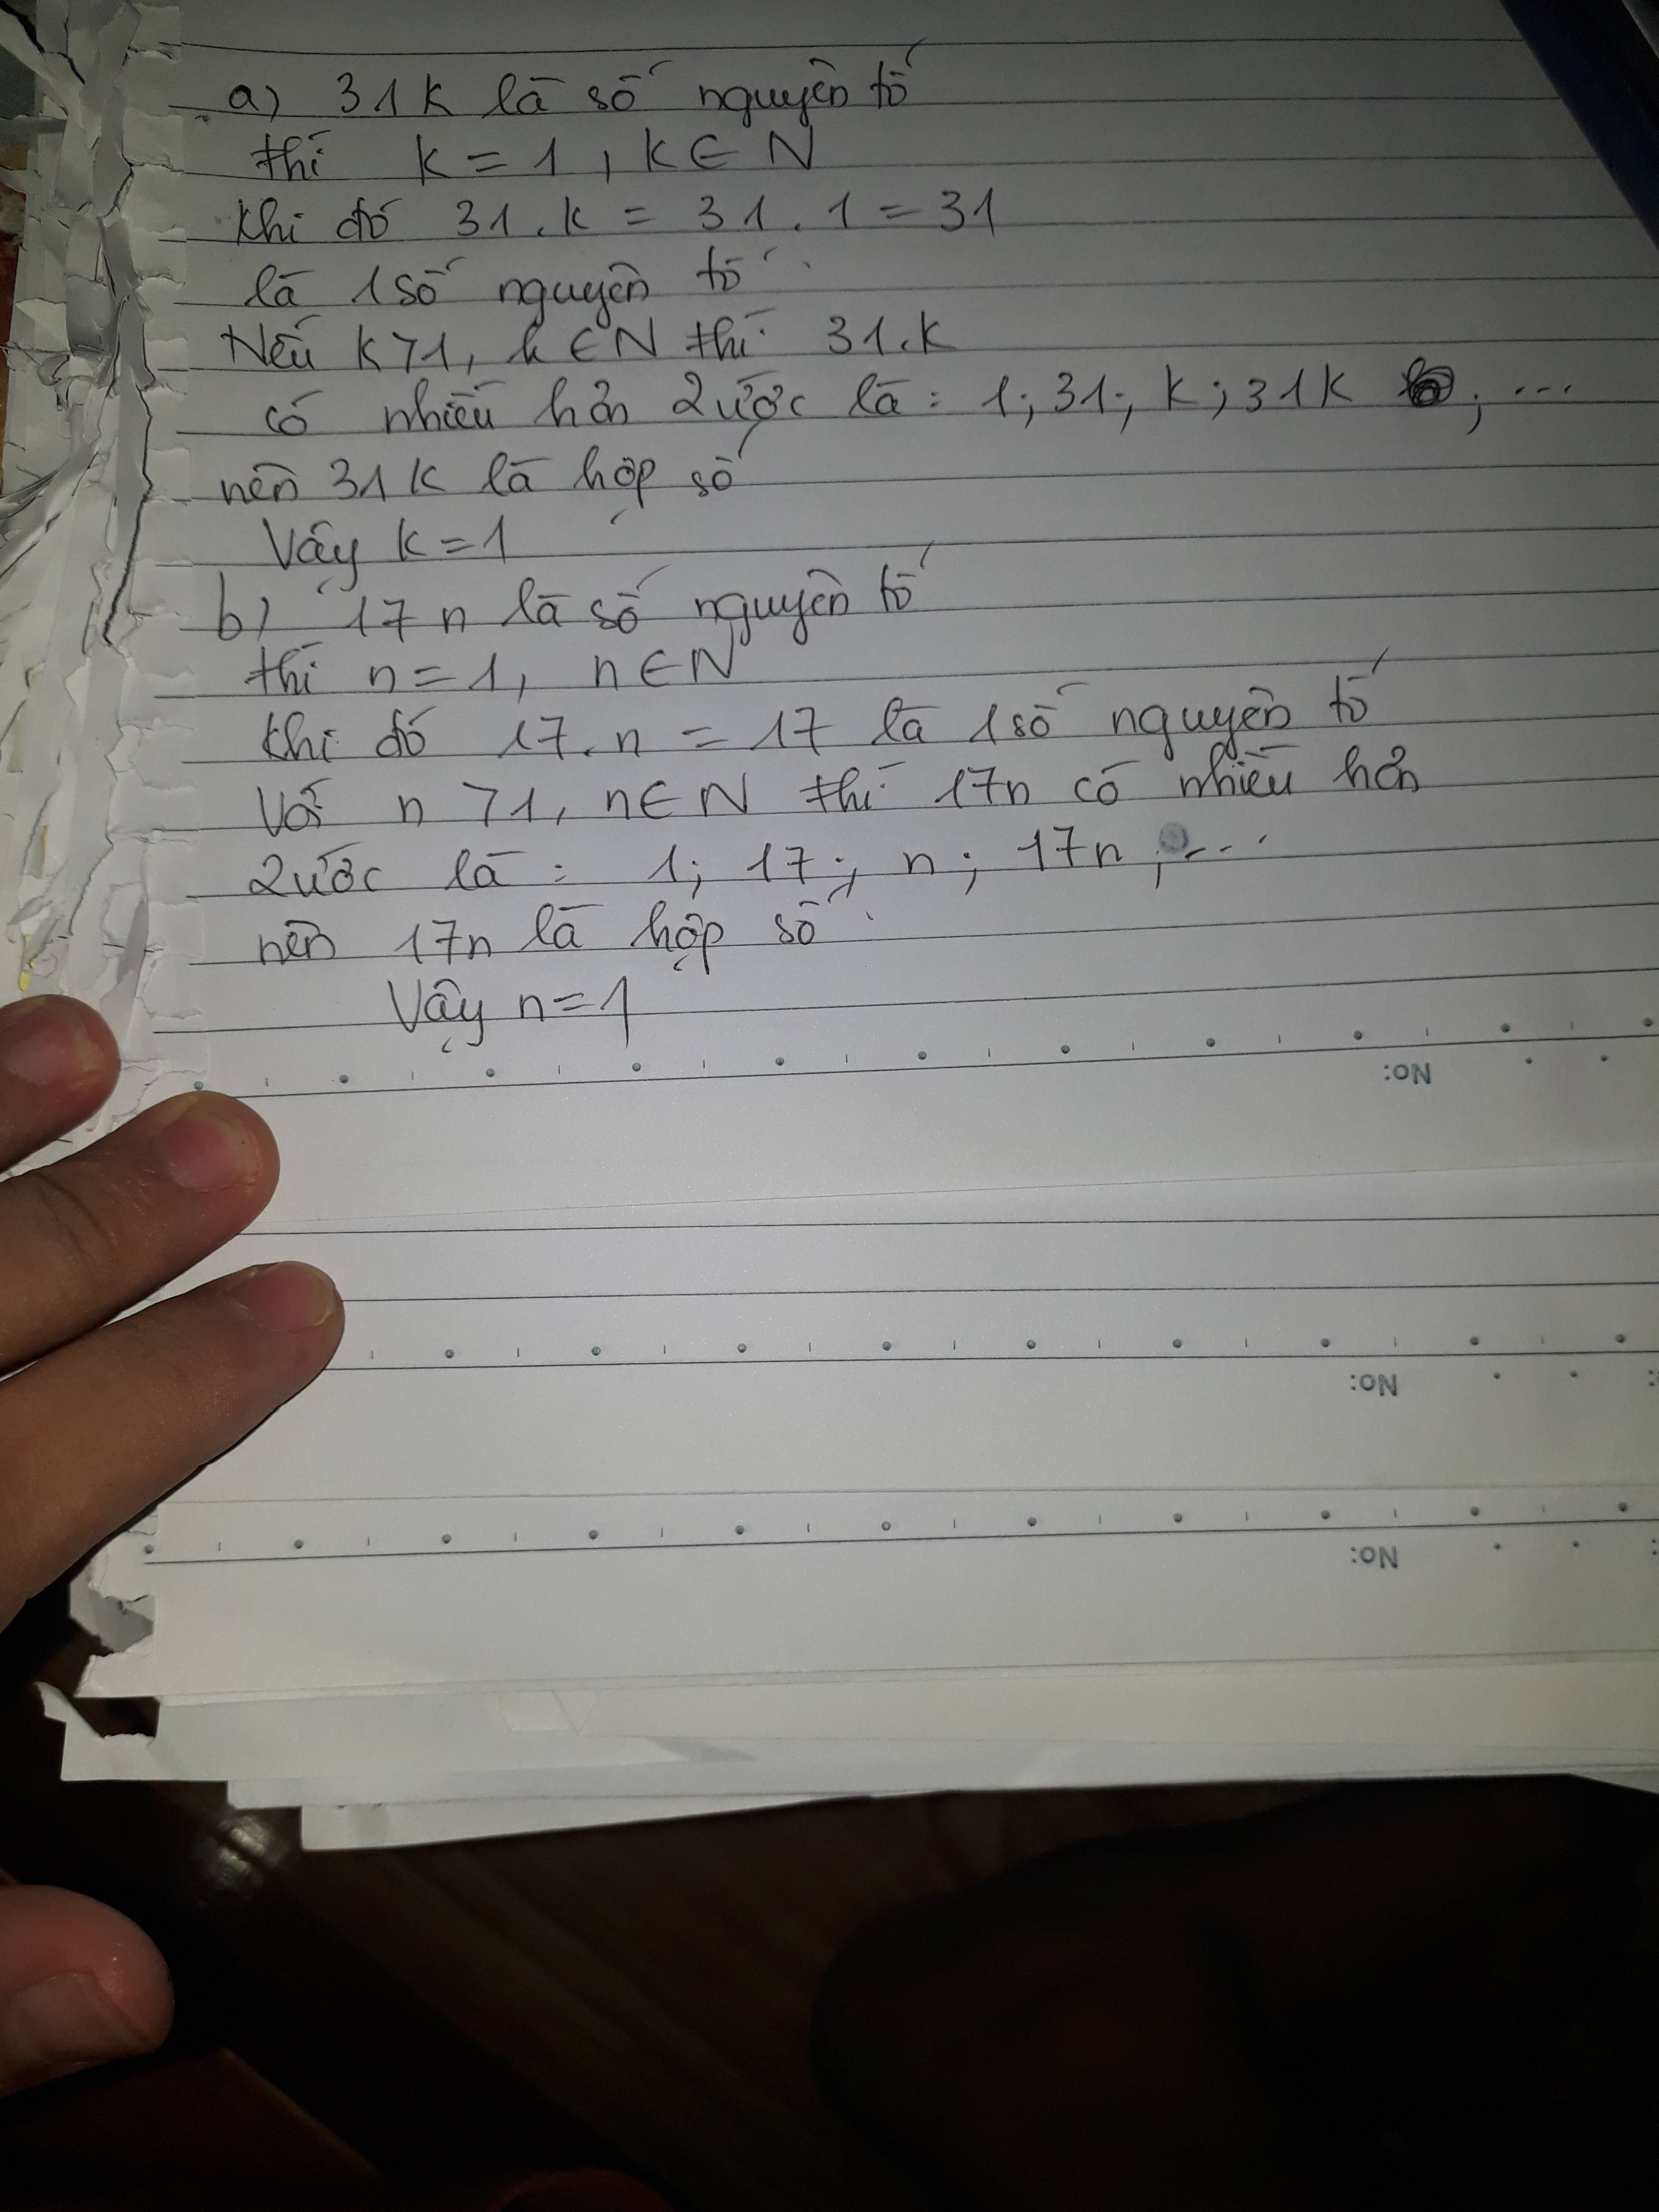 a) 31k là số nguyên tố
thì k = 1, k ∈ N
Khi đó 31.k = 31.1 = 31
là 1 số nguyên tố.
Nếu k>1, k ∈ N thì 31.k
có nhiều hơn 2 ước là: 1; 31; k; 31k ; ...
nên 31k là hợp số
Vậy k = 1
b) 17n là số nguyên tố
thì n = 1, n ∈ N
Khi đó 17.n = 17 là 1 số nguyên tố
Với n >1, n ∈ N thì 17n có nhiều hơn
2 ước là: 1; 17; n; 17n; ...
nên 17n là hợp số.
Vậy n = 1
No:
No:
No: